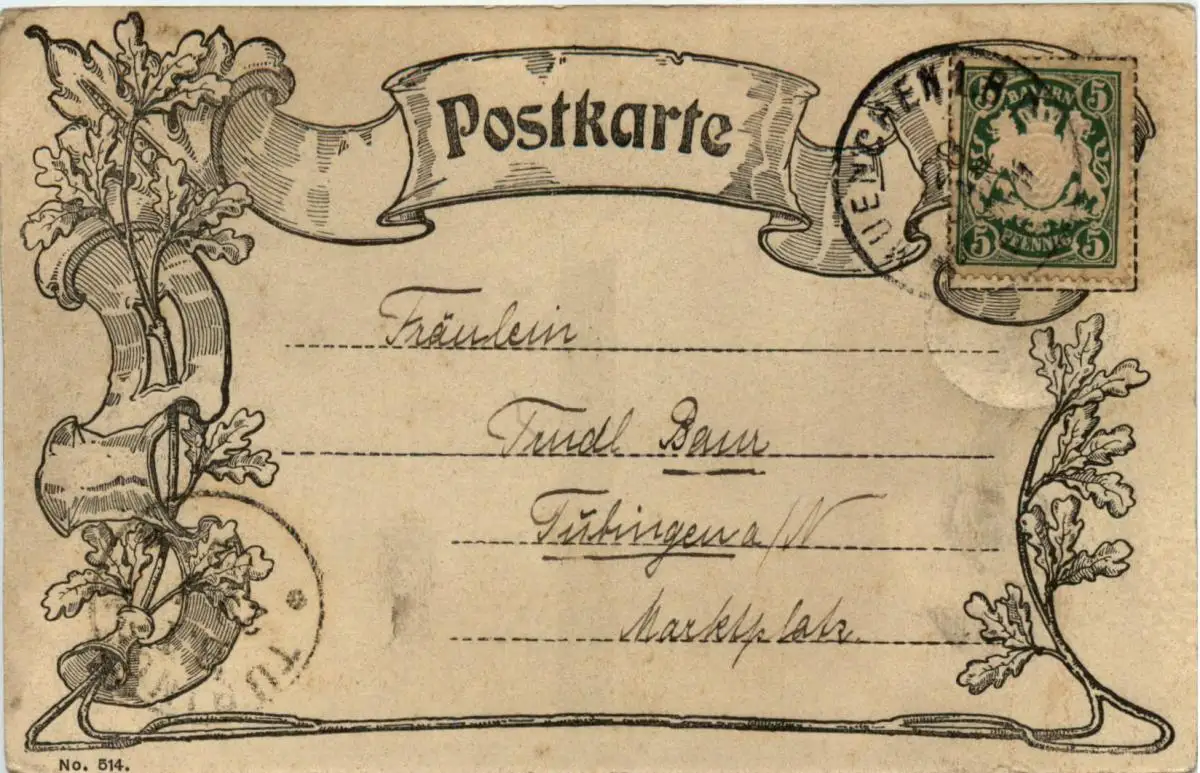 Postkarte
MUENCHEN 1. B.
5 BAYERN 5
5 PFENNIG 5
Fräulein
Trudl Baur
Tübingen a/N
Marktplatz.
TÜB
No. 514.